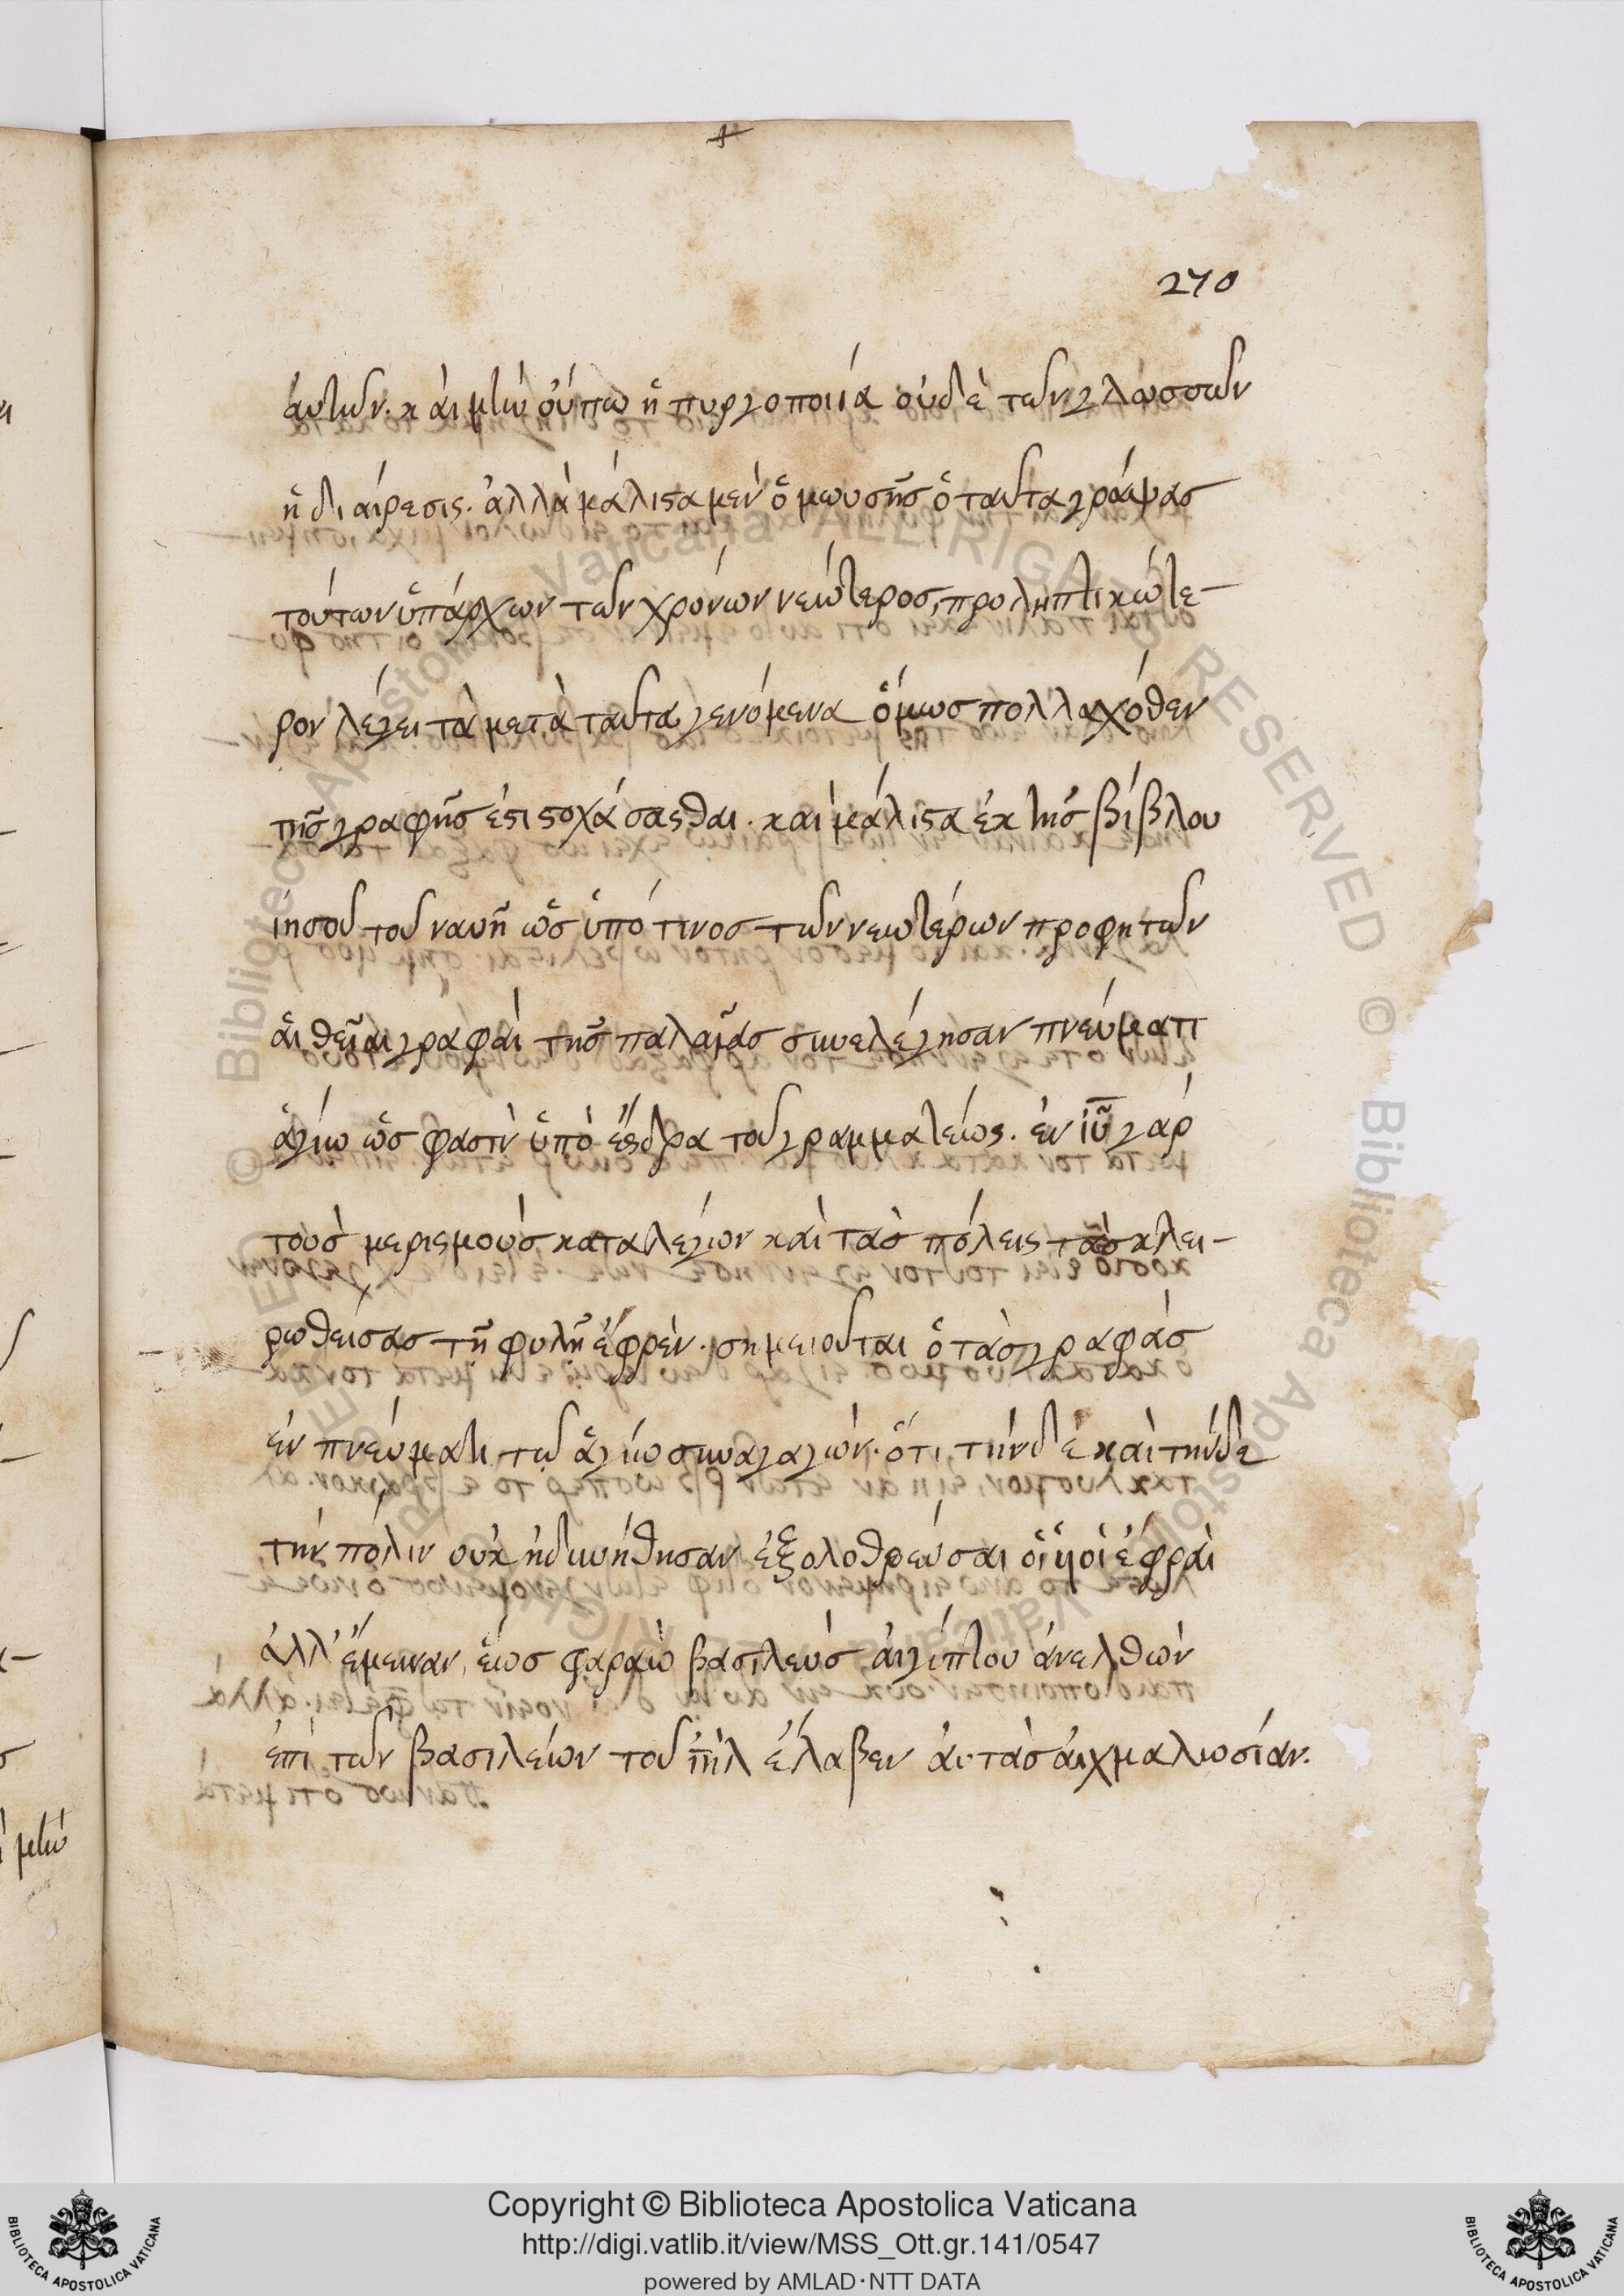 270
ἀυτῶν. κἀι μὴν ὀύπω ἡ πυργοποιία ὀυδὲ τῶν γλωσσῶν
ἡ διαίρεσις. ἀλλὰ μάλιϛα μὲν ὁ μωυσῆσ ὁ ταῦτα γράψασ
τούτων ὑπάρχων τῶν χρόνων νεώτεροσ, προληπτικώτε-
ρον λέγει τὰ μετὰ ταῦτα γενόμενα ὅμωσ πολλαχόθεν
τῆσ γραφῆσ ἐϛιϛοχάσασθαι. καὶ μάλιϛα ἐκ τῆσ βίβλου
ἰησοῦ τοῦ ναυῆ ὡσ ὑπό τινοσ τῶν νεωτέρων προφητῶν
ἁι θεῖαι γραφάι τῆσ παλαιᾶσ συνελέγησαν πνεύματι
ἁγίω ὥσ φασιν ὑπὸ ἔσδρα τοῦ γραμματέως. ἐν ἰῦ γάρ
τοὺσ μερισμοὺσ καταλέγων κἀι τὰσ πόλεις τὰσ κλει-
ρωθείσασ τῆ φυλῆ ἐφρὲν. σημειοῦται ὁ τὰσ γραφάσ
ἐν πνεύματι τῶ ἁγίω συναγαγών. ὅτι τήνδε καὶ τήνδε
τὴν πόλιν οὐκ ἠδυνήθησαν ἐξολοθρεύσαι ὁι ὑοὶ ἐφραὶ
ἀλλ' ἔμειναν, ἕωσ φαραὼ βασιλεὺσ ἀιγύπτου ἀνελθὼν
ἐπὶ τῶν βασιλείων τοῦ ἰῆλ ἔλαβεν ἀυτὰσ ἀιχμαλωσίαν.
μὴν
Copyright © Biblioteca Apostolica Vaticana
http://digi.vatlib.it/view/MSS_Ott.gr.141/0547
powered by AMLAD·NTT DATA
BIBLIOTECA APOSTOLICA VATICANA
BIBLIOTECA APOSTOLICA VATICANA